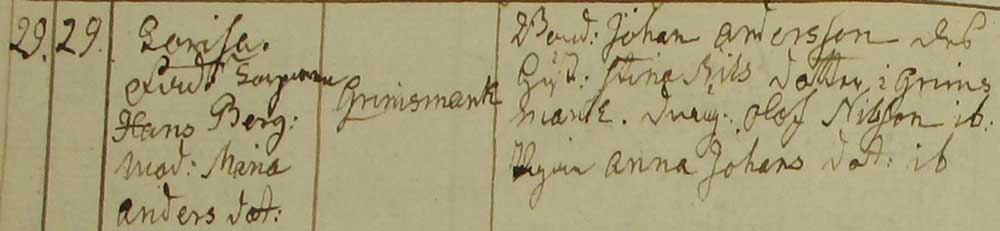 29. 29. Lovisa.
Fad:
Hans Berg:
Mod: Maria
anders dot:
Grimsmark
Bond: Johan andersson des
Hust: Stina Nils dotter i Grims
mark. dräng: Olof Nilsson ib:
Pigan anna Johans dot: ib